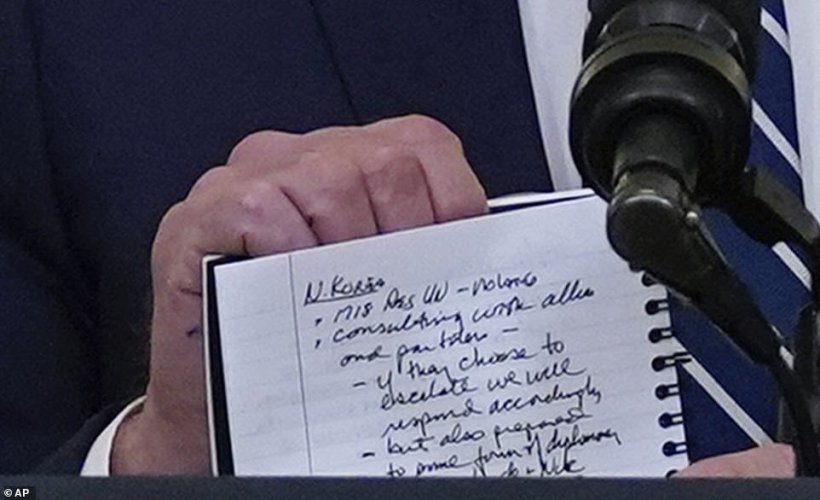 N. KOREA
• 1718 Res UN - violated
• consulting with allies
and partners -
- if they choose to
escalate we will
respond accordingly
- but also prepared
to some form of diplomacy
© AP